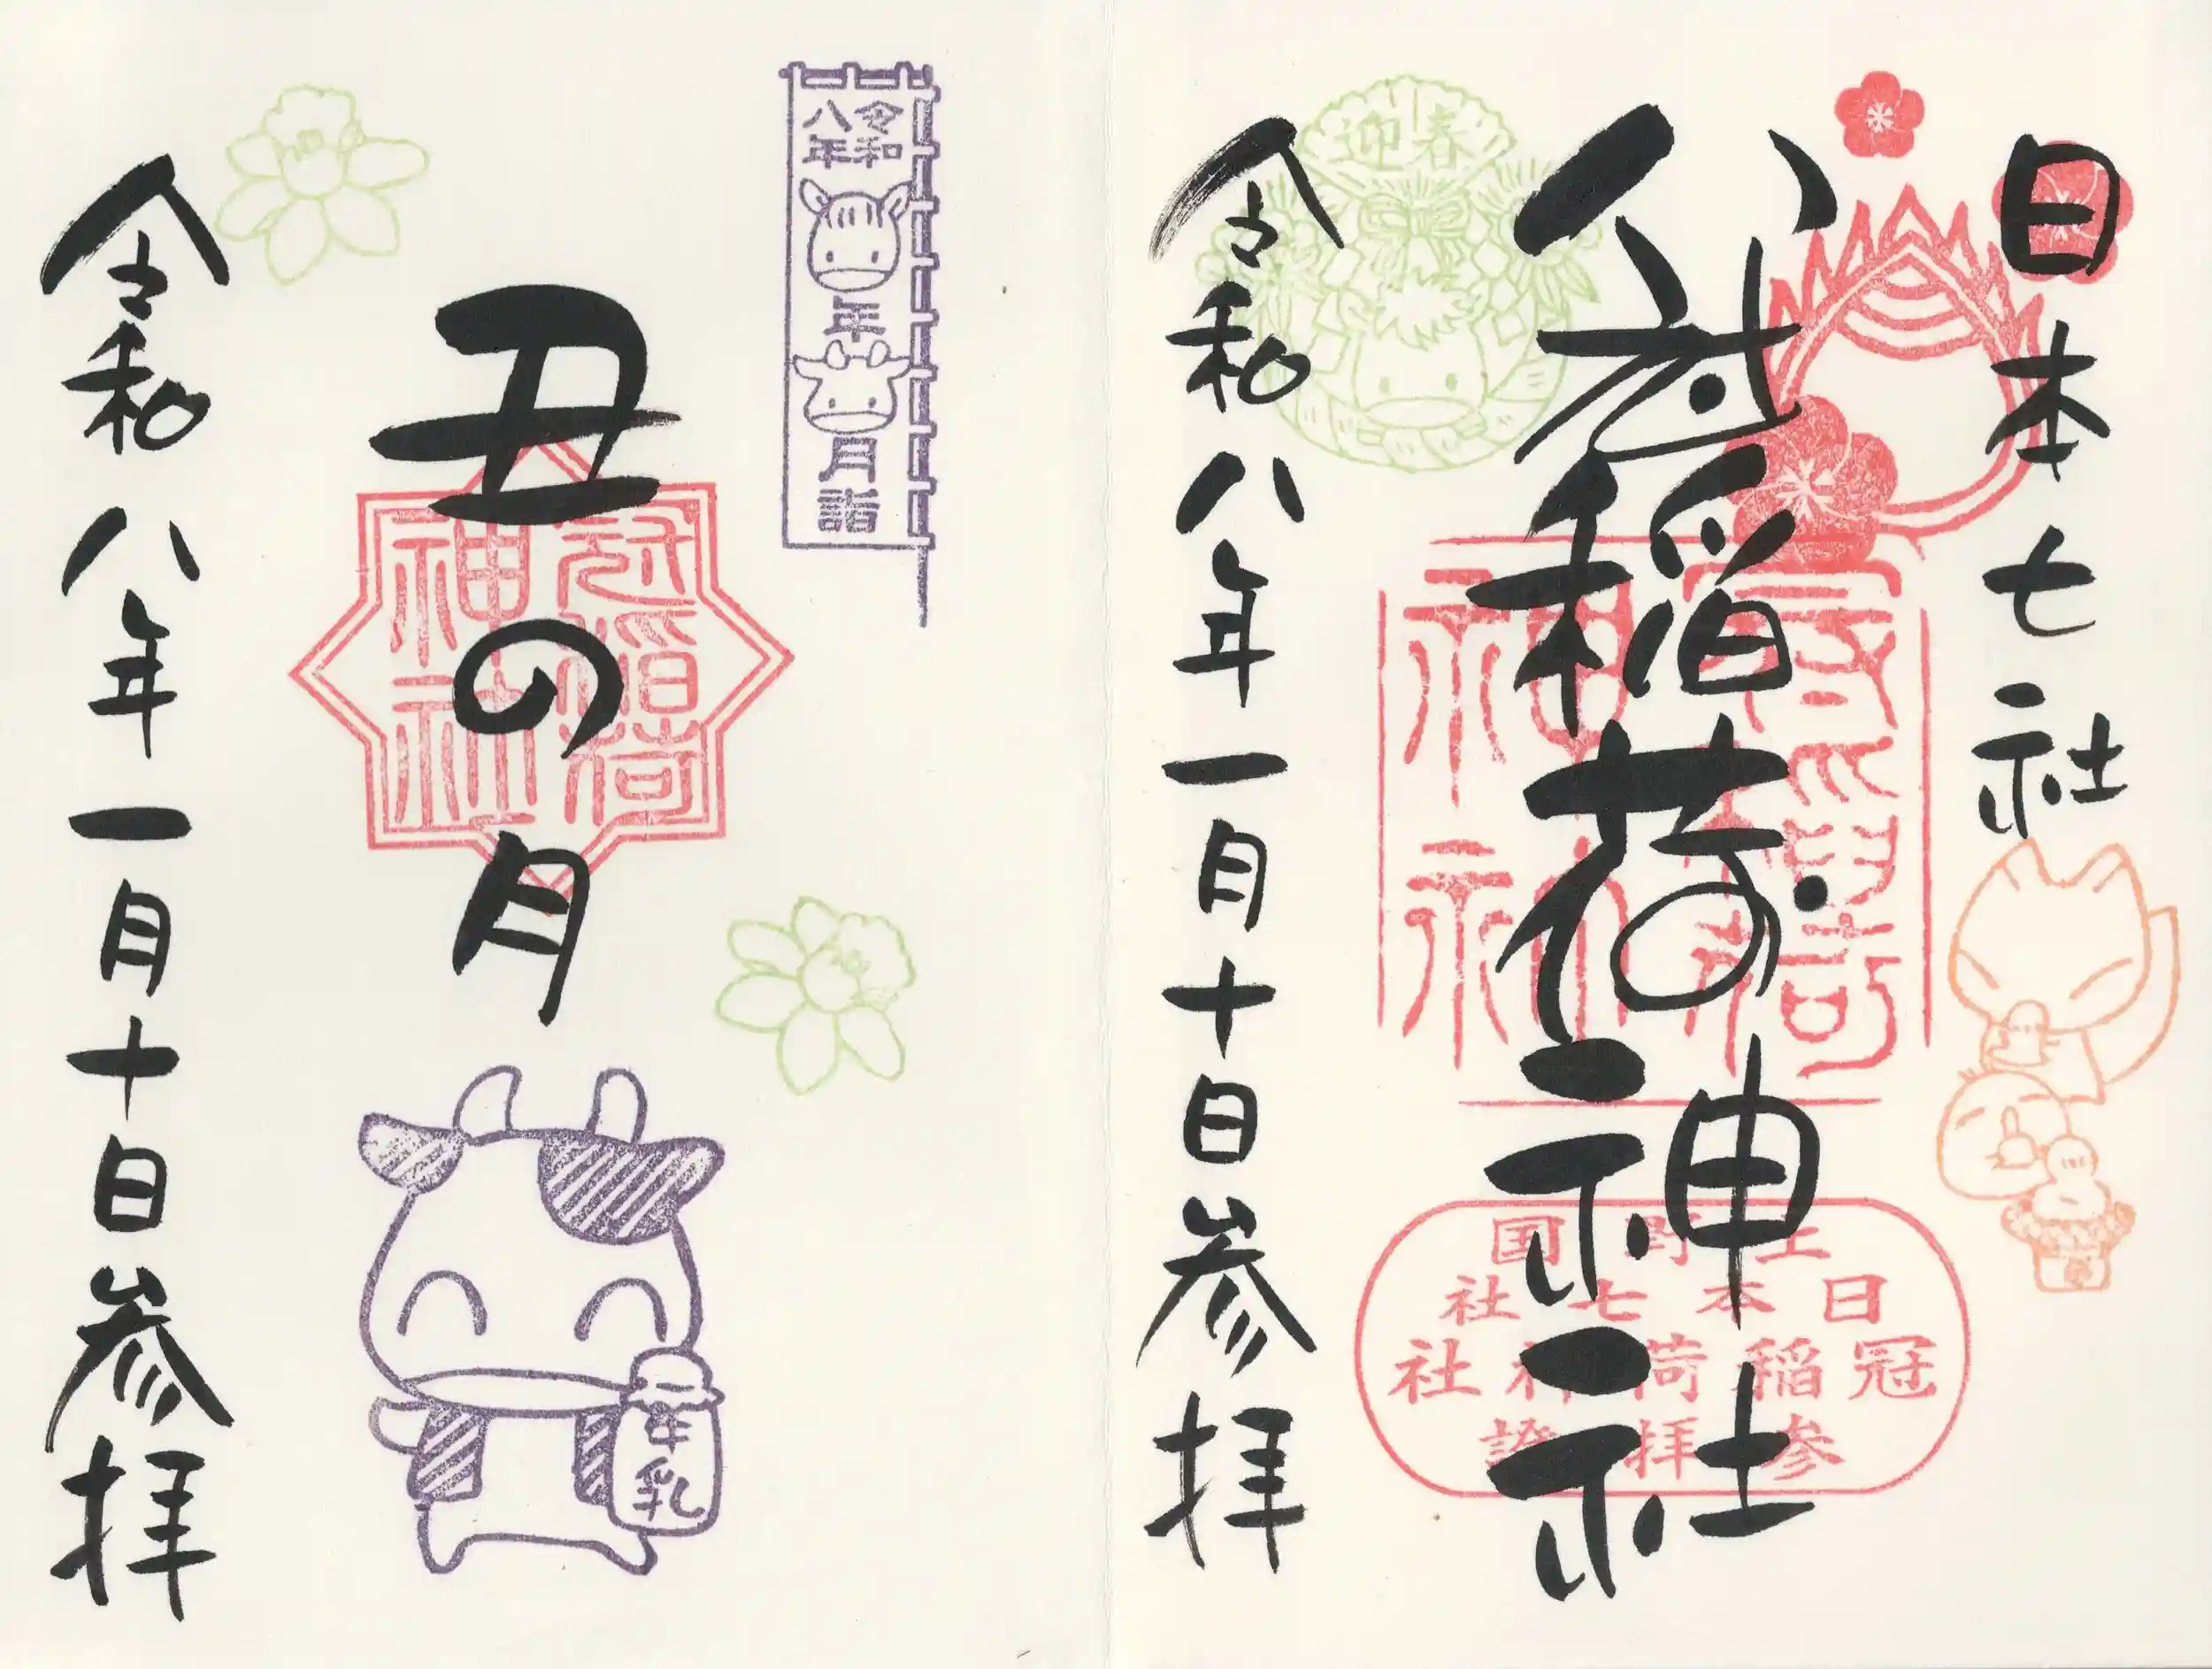 日本七社
冠稲荷神社
迎春
冠稲荷神社
上野国
日本七社
冠稲荷神社
参拝證
令和八年一月十日参拝
令和
八年
年
月
詣
丑の月
冠稲荷
神社
牛乳
令和八年一月十日参拝